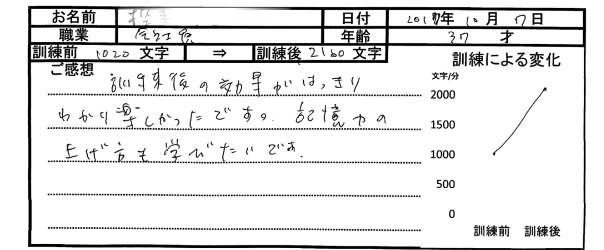 お名前 日付 2018年10月7日
職業 会社員 年齢 37才
訓練前 1020文字 ⇒ 訓練後 2160文字
ご感想
訓練後の効果がはっきり
わかり楽しかったです。記憶力の
上げ方も学びたいです。
訓練による変化
文字/分
2000
1500
1000
500
0
訓練前 訓練後